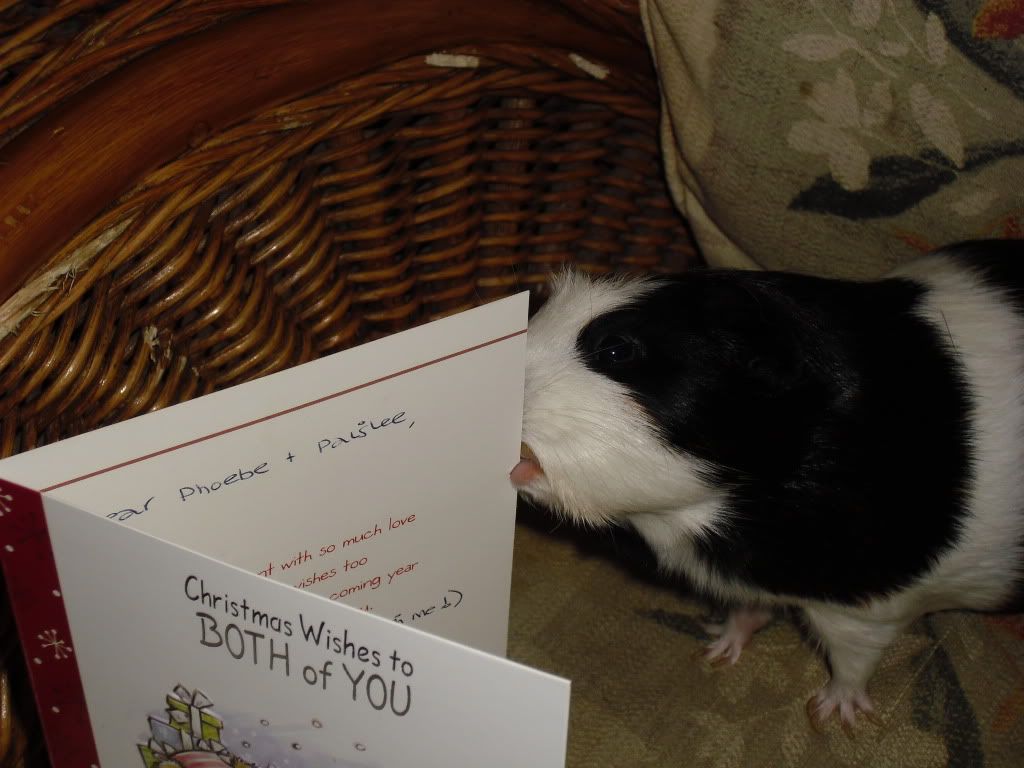 Phoebe + Paislee,
with so much love
wishes too
coming year
me &)
Christmas Wishes to
BOTH of YOU